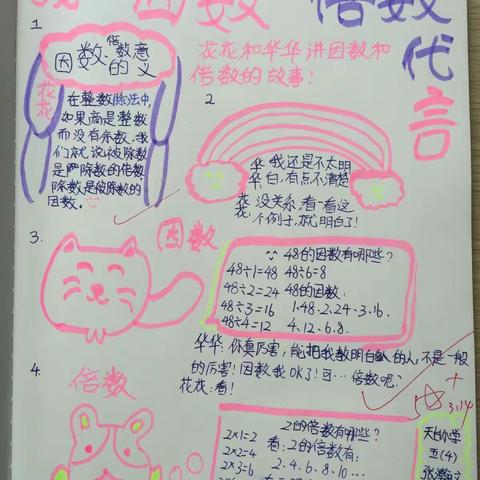 因数 倍数
代言
1
因数·倍数意
的义
花花和华华讲因数和
倍数的故事！
花花
在整数除法中,
如果商是整数
而没有余数,我
们就说被除数
是除数的倍数,
除数是被除数的
因数。
2
华华:我还是不太明
白,有点不清楚
花花:没关系,看一看这
个例子,就明白了!
3.
因数
48的因数有哪些?
48÷1=48 48÷6=8
48÷2=24 48的因数:
48÷3=16 1.48.2.24.3.16.
48÷4=12 4.12.6.8.
华华:你真厉害,能把我教明白的人,不是一般
的厉害!因数我OK了!可…倍数呢?
花花:看!
4.
倍数
2的倍数有哪些?
2×1=2 看:2的倍数有:
2×2=4 2.4.6.8.10…
2×3=6
5
3.14
天台小学
五(4)